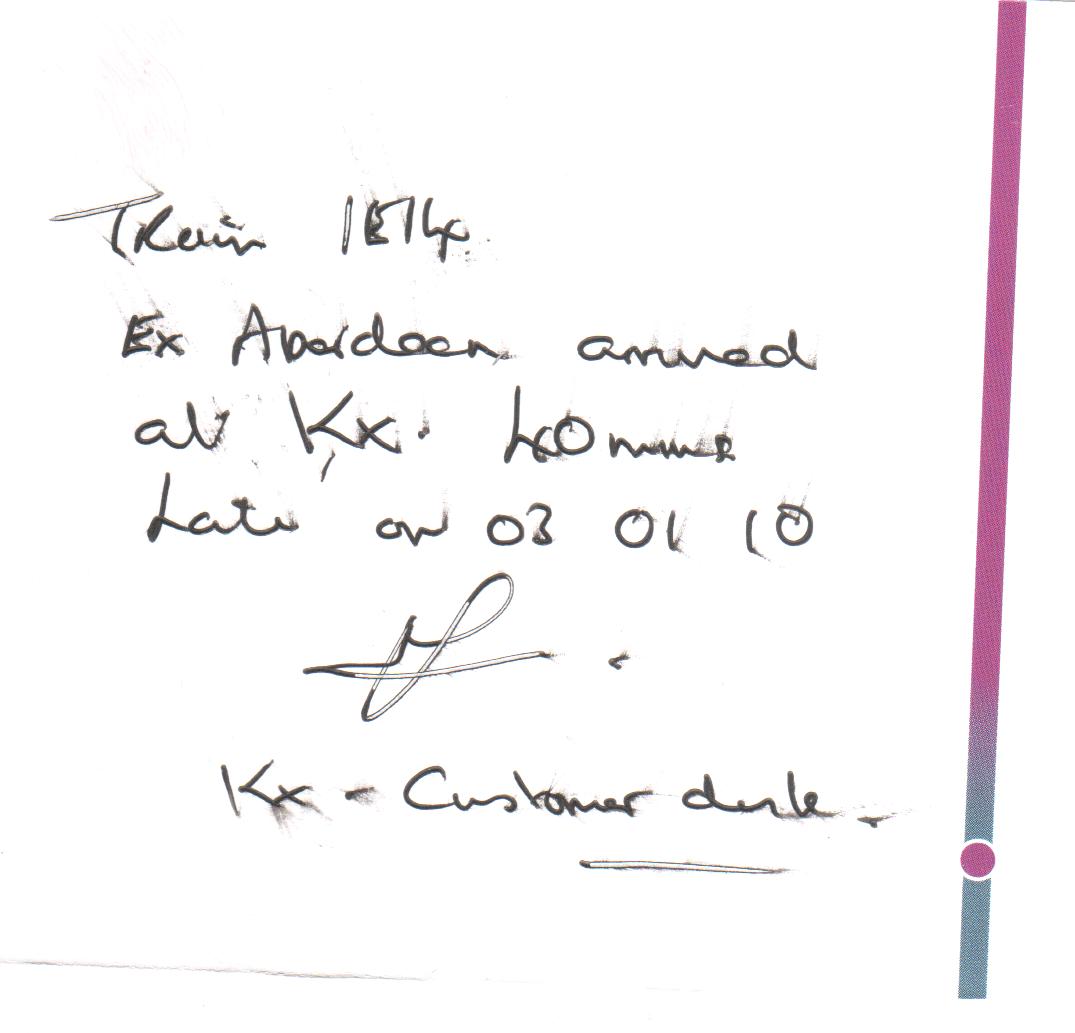 Train 1E14
Ex Aberdeen arrived
at Kx. 40 mins
Late on 03 01 10
Kx - Customer desk.